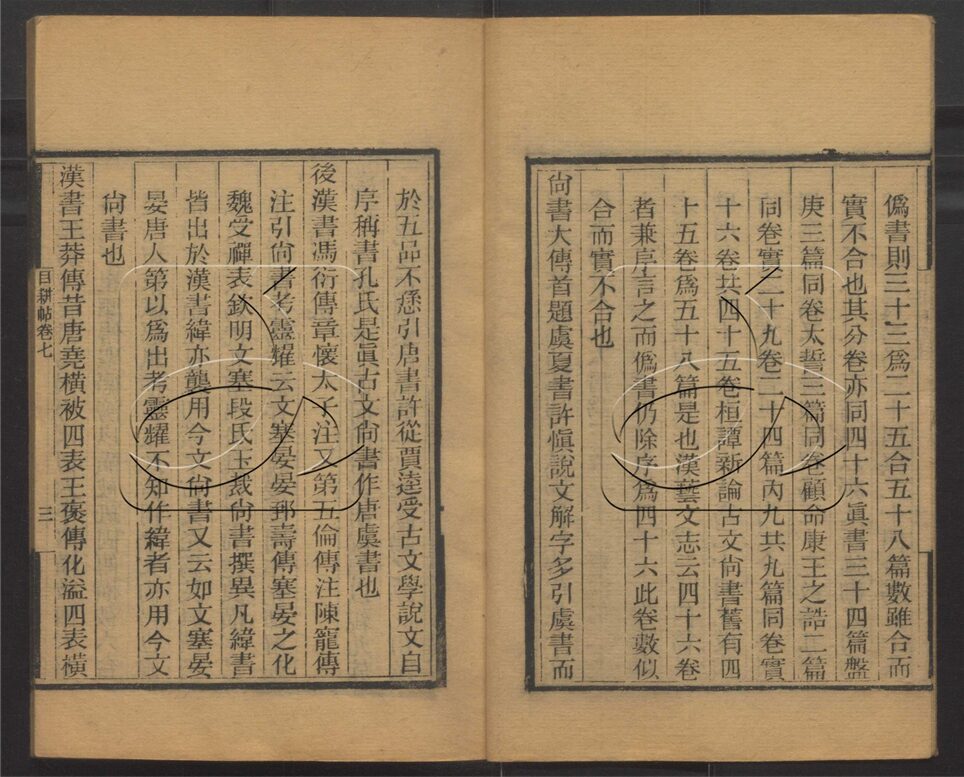 僞書則三十三爲二十五合五十八篇數雖合而
實不合也其分卷亦同四十六眞書三十四篇盤
庚三篇同卷太誓三篇同卷顧命康王之誥二篇
同卷實二十九卷二十四篇內九共九篇同卷實
十六卷共四十五卷桓譚新論古文尙書舊有四
十五卷爲五十八篇是也漢藝文志云四十六卷
者兼序言之而僞書仍除序爲四十六此卷數似
合而實不合也
尙書大傳首題虞夏書許愼說文解字多引虞書而
於五品不愻引唐書許從賈逵受古文學說文自
序稱書孔氏是眞古文尙書作唐虞書也
後漢書馮衍傳章懷太子注又第五倫傳注陳寵傳
注引尙書考靈耀云文塞晏晏郅壽傳塞晏之化
魏受禪表欽明文塞段氏玉裁尙書撰異凡緯書
皆出於漢書緯亦襲用今文尙書又云如文塞晏
晏唐人第以爲出考靈耀不知作緯者亦用今文
尙書也
漢書王莽傳昔唐堯橫被四表王褒傳化溢四表橫
目耕帖卷七
三